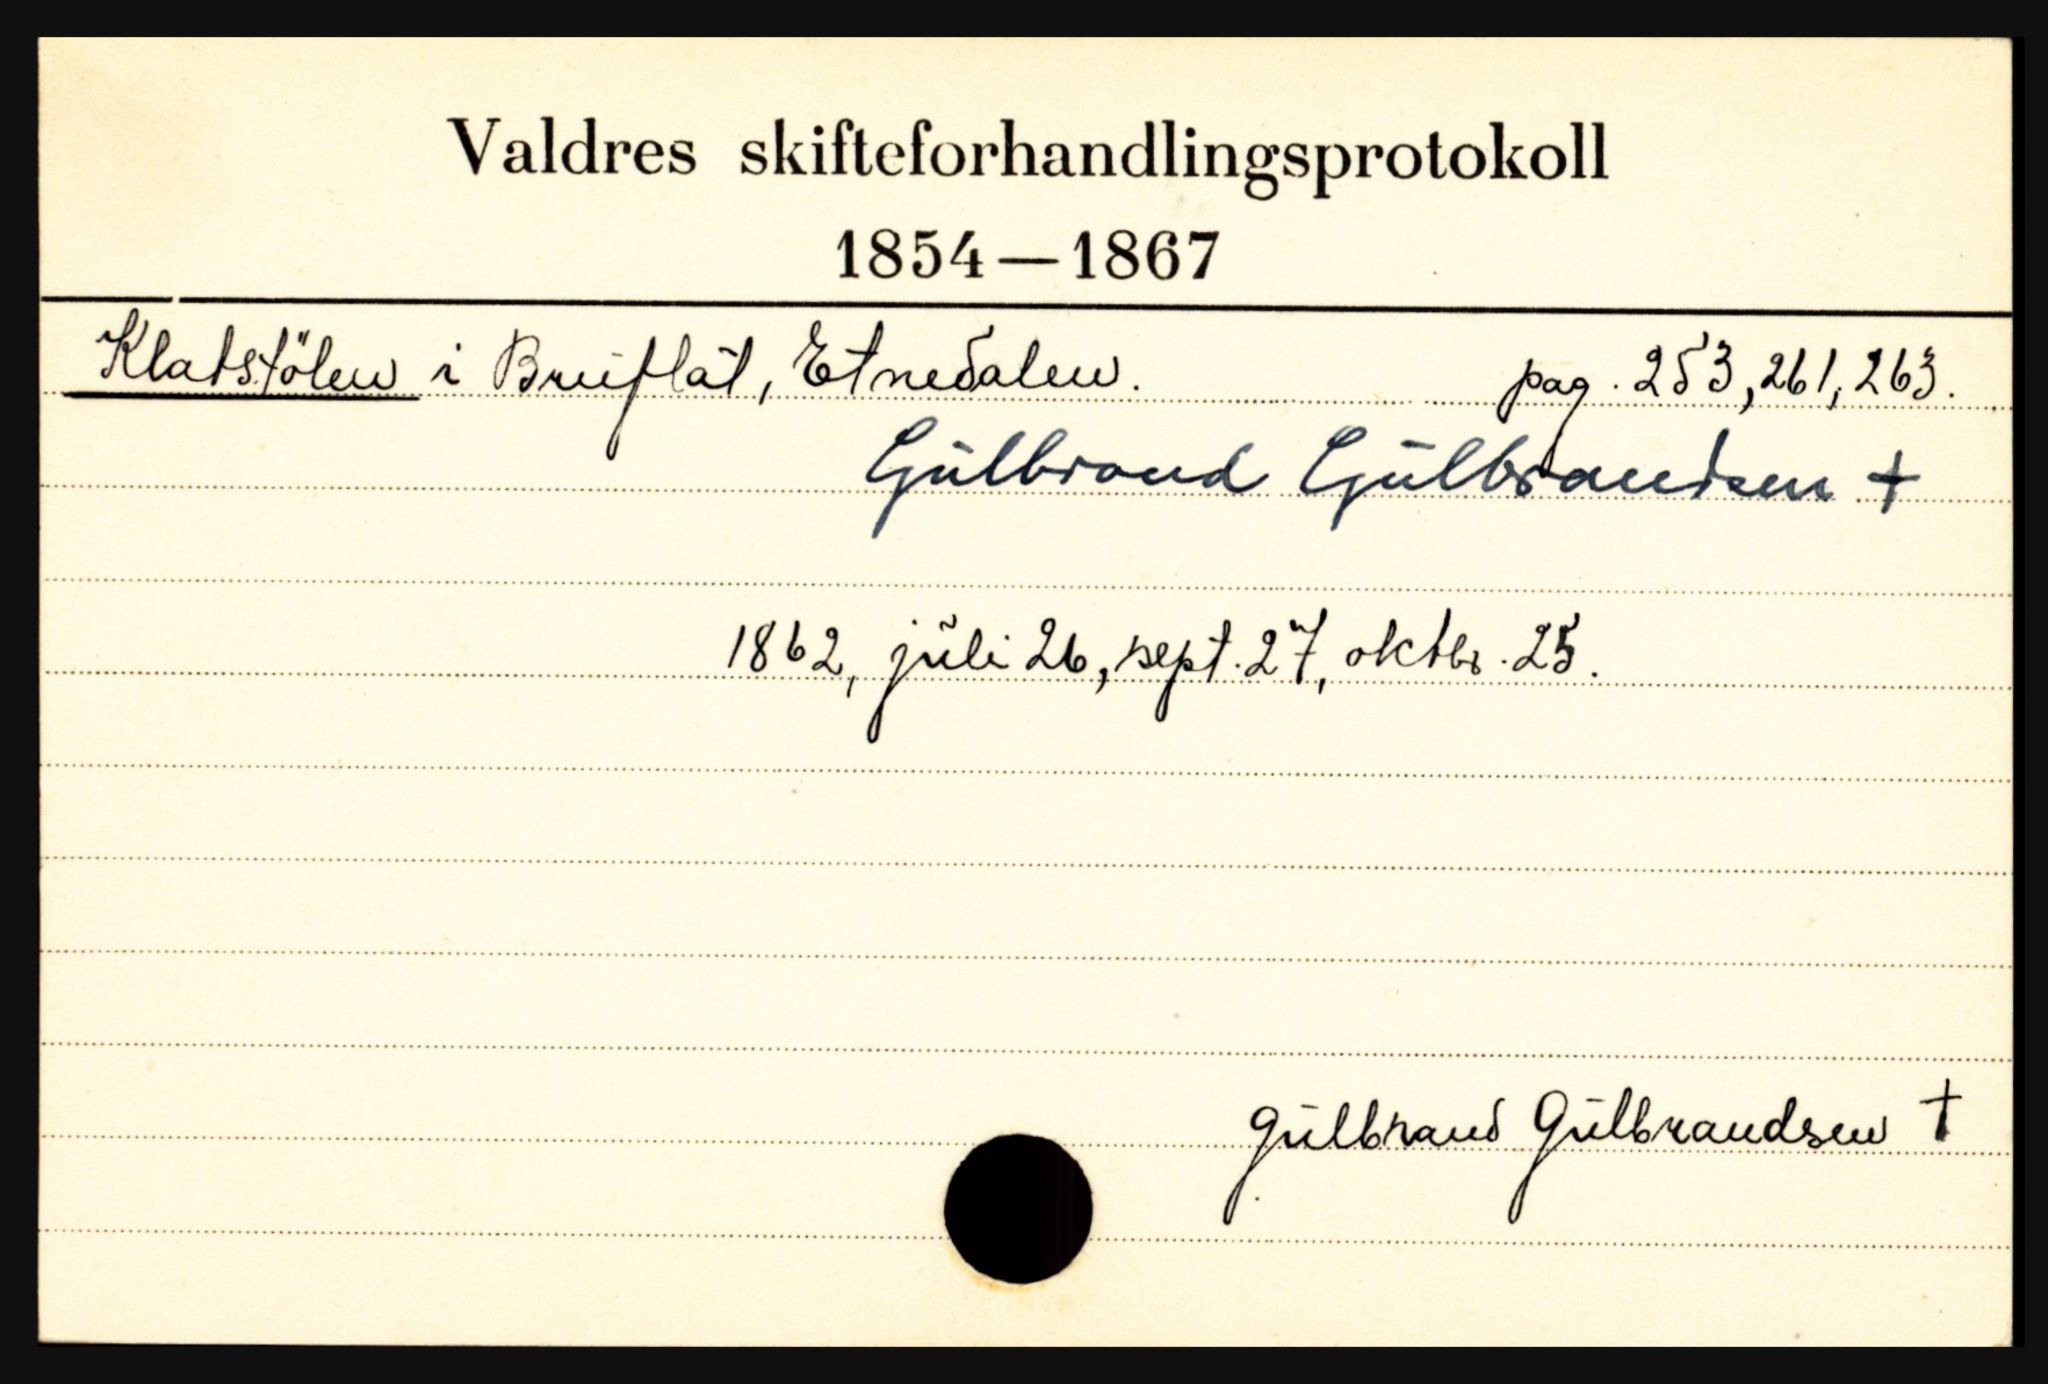 Valdres skifteforhandlingsprotokoll
1854—1867
Klatstölen i Bruflat, Etnedalen. pag. 253, 261, 263.
Gulbrand Gulbrandsen +
1862, juli 26, sept. 27, oktbr. 25.
Gulbrand Gulbrandsen †